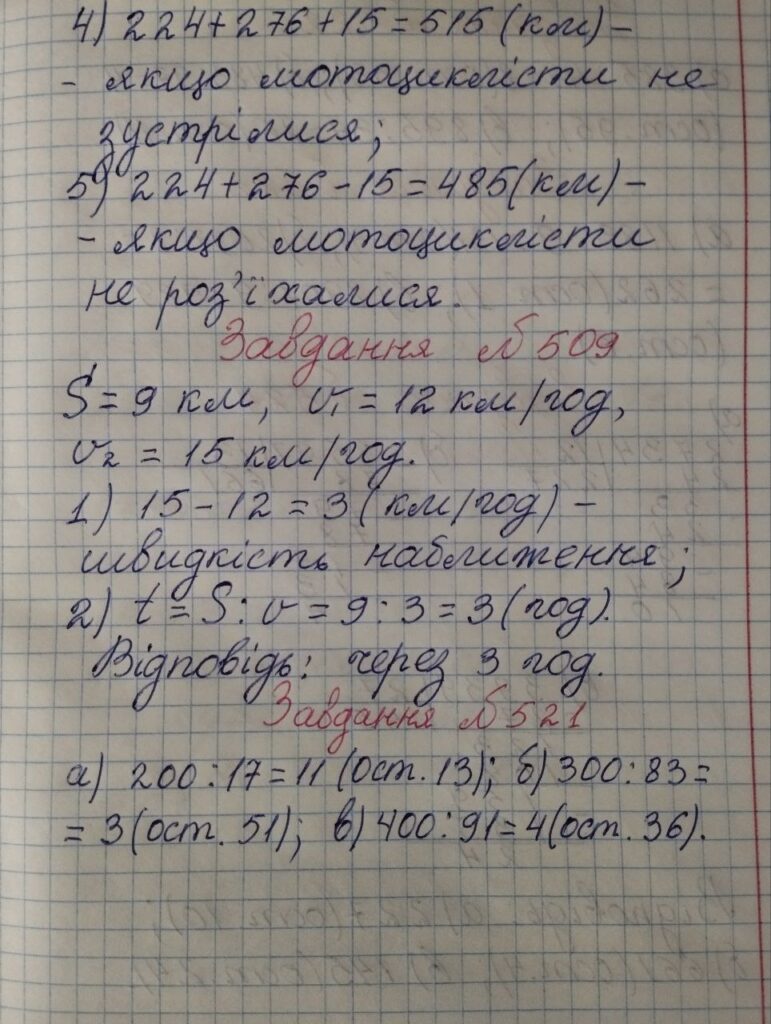 4) 224+276+15=515(км)-
- якщо мотоциклісти не
зустрілися;
5) 224+276-15=485(км)-
- якщо мотоциклісти
не роз'їхалися.
Завдання №509
S=9 км, v₁=12 км/год,
v₂=15 км/год.
1) 15-12=3(км/год)-
швидкість наближення;
2) t=S:v=9:3=3(год).
Відповідь: через 3 год.
Завдання №521
а) 200:17=11(ост.13); б)300:83=
=3(ост.51); в)400:91=4(ост.36).